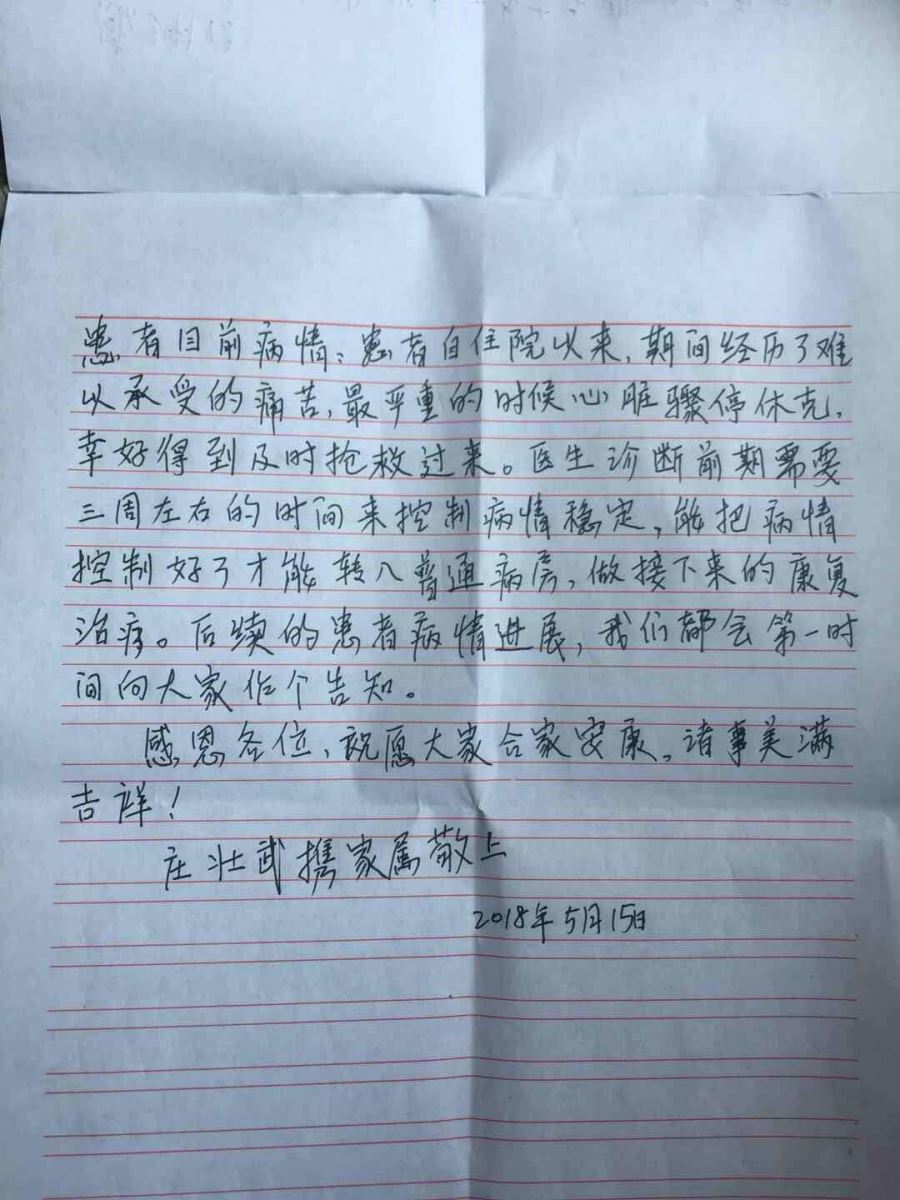 患者目前病情：患者自住院以来，期间经历了难
以承受的痛苦，最严重的时候心脏骤停休克，
幸好得到及时抢救过来。医生诊断前期需要
三周左右的时间来控制病情稳定，能把病情
控制好了才能转入普通病房，做接下来的康复
治疗。后续的患者病情进展，我们都会第一时
间向大家作个告知。
感恩各位，祝愿大家合家安康，诸事美满
吉祥！
庄壮武携家属敬上
2018年5月15日